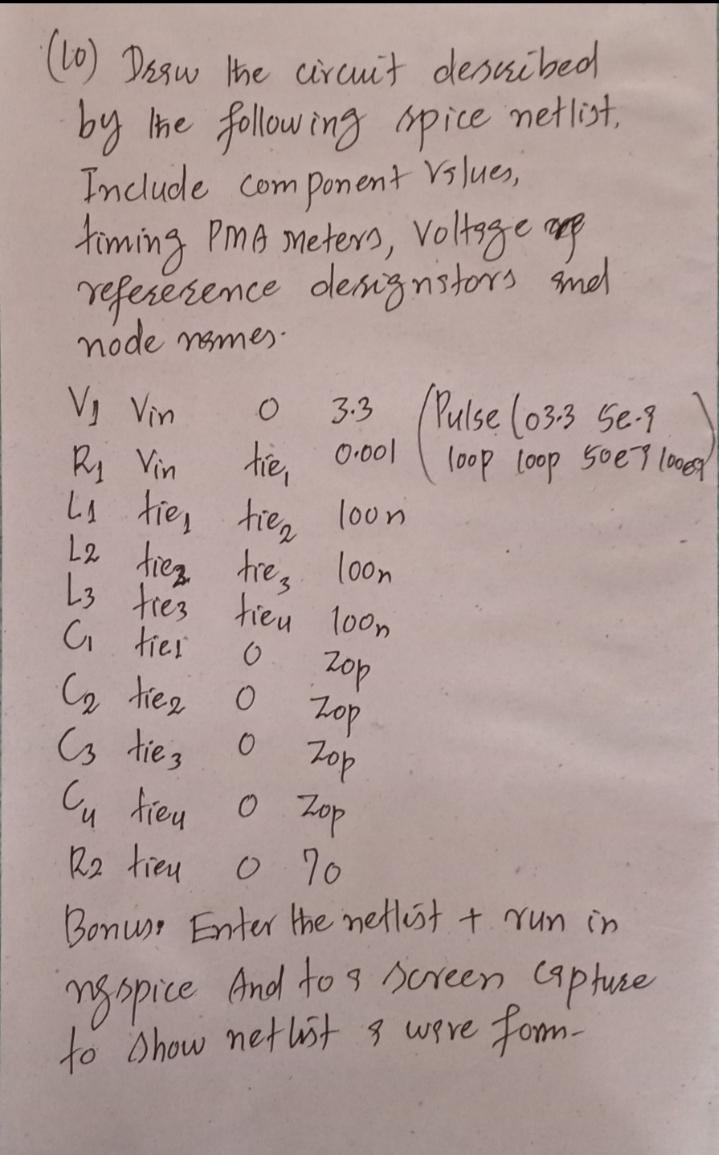 (10) Draw the circuit described
by the following spice netlist.
Include component values,
timing PMA meters, voltage
refesesence designators and
node names.
V1 Vin 0 3.3 (Pulse (03.3 5e-9
R1 Vin tie1 0.001 100p 100p 50e9 100e9)
L1 tie1 tie2 100n
L2 tie2 tie3 100n
L3 tie3 tie4 100n
C1 tie1 0 20p
C2 tie2 0 20p
C3 tie3 0 20p
C4 tie4 0 20p
R2 tie4 0 70
Bonus: Enter the netlist + run in
ngspice And to a screen capture
to show netlist & wave form-